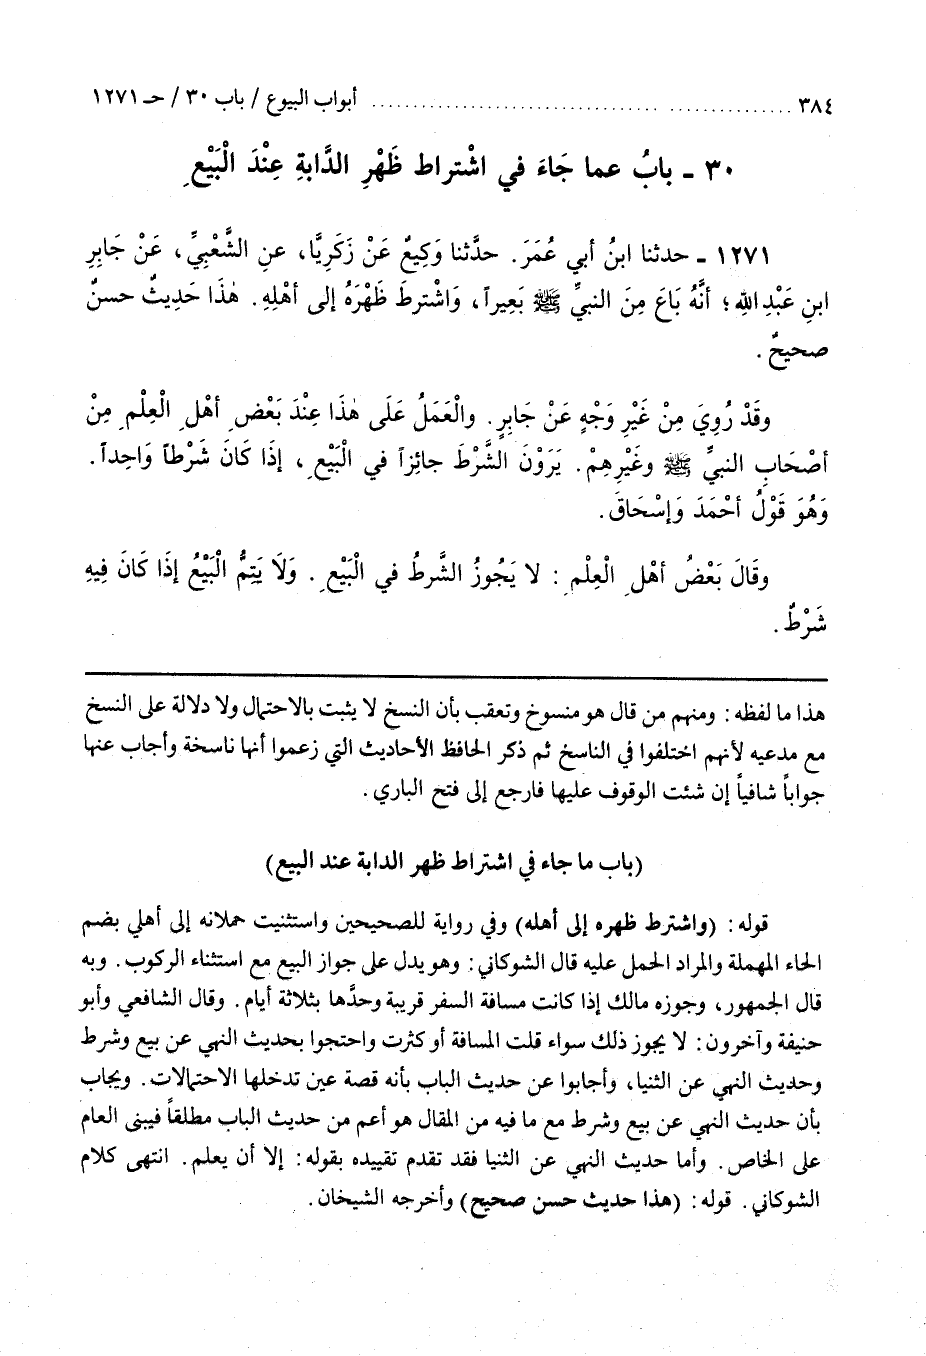 ٣٨٤ ................................................ أبواب البيوع / باب ٣٠ / حـ ١٢٧١
٣٠ - بابُ عما جَاءَ في اشْتراط ظَهْرِ الدَّابةِ عِنْدَ الْبَيْعِ
١٢٧١ - حدثنا ابنُ أبي عُمَرَ. حدَّثنا وَكِيعٌ عَنْ زَكَرِيَّا، عنِ الشَّعْبِيِّ، عَنْ جَابِرِ
ابنِ عَبْدِ اللهِ؛ أنَّهُ بَاعَ مِنَ النبيِّ ﷺ بَعِيراً، وَاشْترطَ ظَهْرَهُ إلى أهْلِهِ. هٰذَا حَدِيثٌ حسنٌ
صحيحٌ.
وقَدْ رُوِيَ مِنْ غَيْرِ وَجْهٍ عَنْ جَابِرٍ. والْعَمَلُ عَلَى هٰذَا عِنْدَ بَعْضِ أهْلِ الْعِلْمِ مِنْ
أصْحَابِ النبيِّ ﷺ وغَيْرِهِمْ. يَرَوْنَ الشَّرْطَ جائِزاً في الْبَيْعِ، إذَا كَانَ شَرْطاً وَاحِداً.
وَهُوَ قَوْلُ أحْمَدَ وَإسْحَاقَ.
وقَالَ بَعْضُ أهْلِ الْعِلْمِ: لا يَجُوزُ الشَّرطُ في الْبَيْعِ. وَلَا يَتِمُّ الْبَيْعُ إذَا كَانَ فِيهِ
شَرْطٌ.
هذا ما لفظه: ومنهم من قال هو منسوخ وتعقب بأن النسخ لا يثبت بالاحتمال ولا دلالة على النسخ
مع مدعيه لأنهم اختلفوا في الناسخ ثم ذكر الحافظ الأحاديث التي زعموا أنها ناسخة وأجاب عنها
جواباً شافياً إن شئت الوقوف عليها فارجع إلى فتح الباري.
(باب ما جاء في اشتراط ظهر الدابة عند البيع)
قوله: (واشترط ظهره إلى أهله) وفي رواية للصحيحين واستثنيت حملانه إلى أهلي بضم
الحاء المهملة والمراد الحمل عليه قال الشوكاني: وهو يدل على جواز البيع مع استثناء الركوب. وبه
قال الجمهور، وجوزه مالك إذا كانت مسافة السفر قريبة وحدَّها بثلاثة أيام. وقال الشافعي وأبو
حنيفة وآخرون: لا يجوز ذلك سواء قلت المسافة أو كثرت واحتجوا بحديث النهي عن بيع وشرط
وحديث النهي عن الثنيا، وأجابوا عن حديث الباب بأنه قصة عين تدخلها الاحتمالات. ويجاب
بأن حديث النهي عن بيع وشرط مع ما فيه من المقال هو أعم من حديث الباب مطلقاً فيبنى العام
على الخاص. وأما حديث النهي عن الثنيا فقد تقدم تقييده بقوله: إلا أن يعلم. انتهى كلام
الشوكاني. قوله: (هذا حديث حسن صحيح) وأخرجه الشيخان.